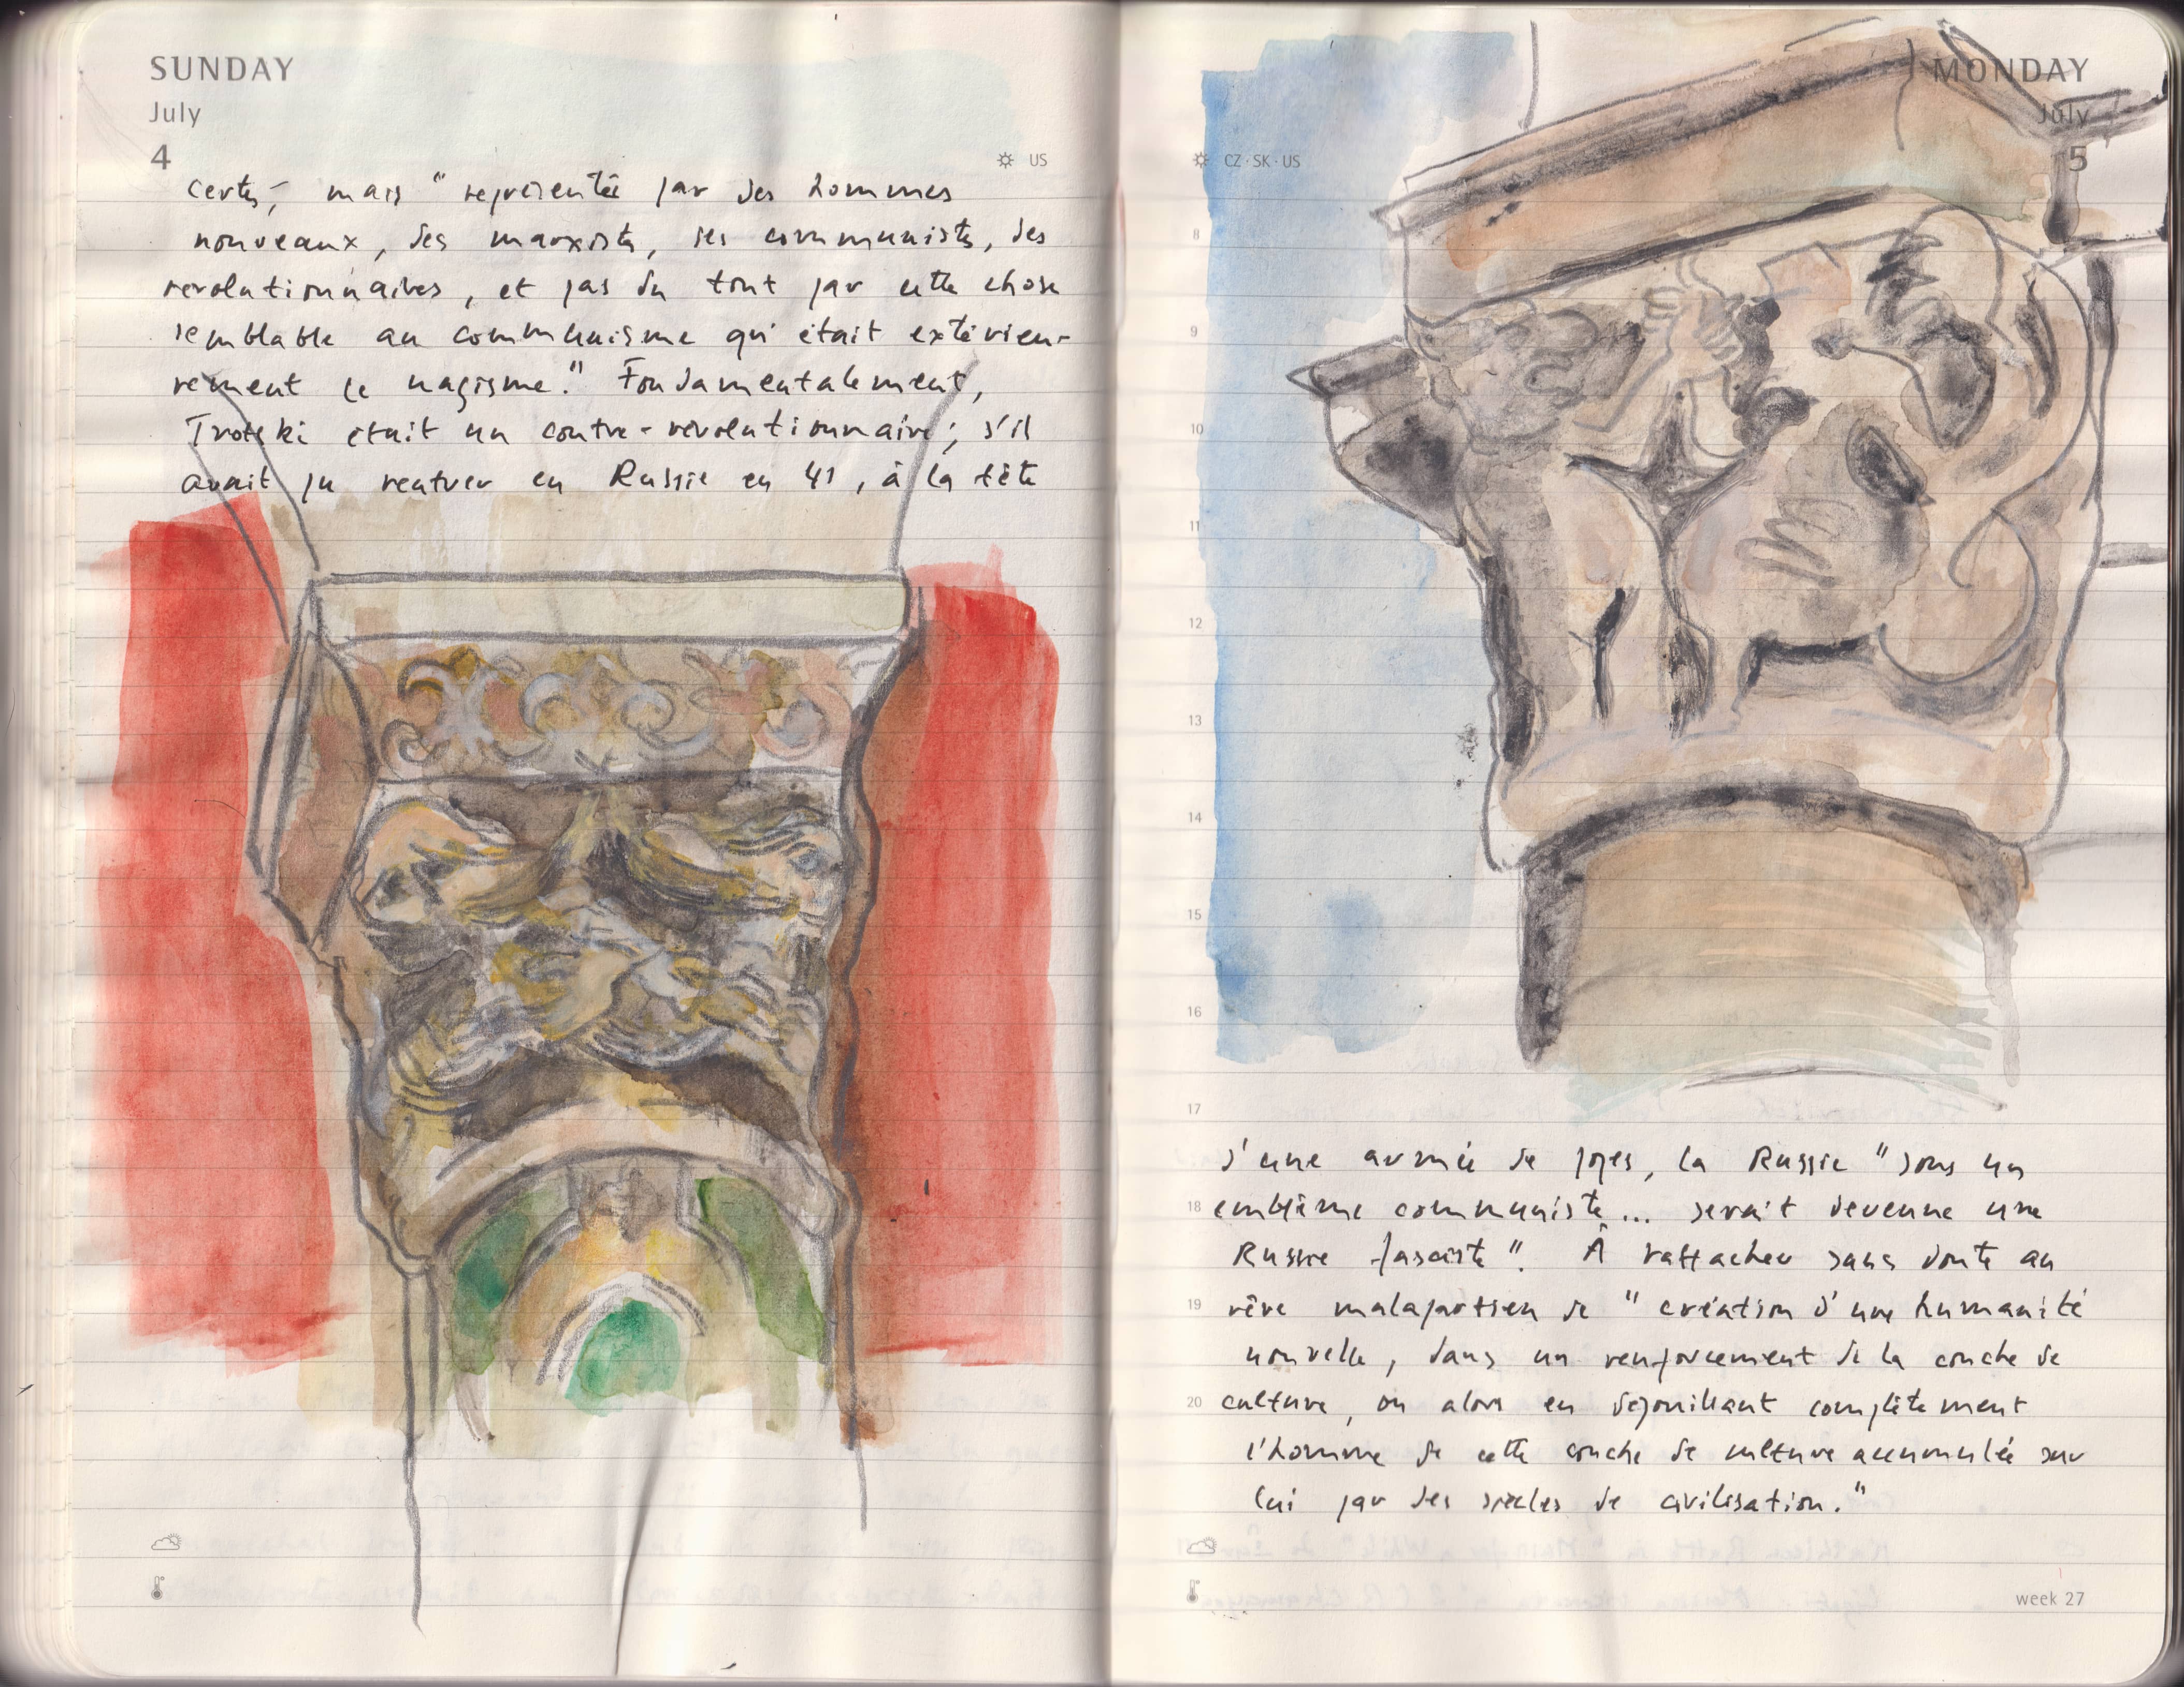 SUNDAY
July
4
US
certes, mais "représentée par des hommes
nouveaux, des marxistes, des communistes, des
révolutionnaires, et pas du tout par cette chose
semblable au communisme qu'était extérieu-
rement le nazisme." Fondamentalement,
Trotski était un contre-révolutionnaire ; s'il
avait pu rentrer en Russie en 41, à la tête
MONDAY
July
5
CZ·SK·US
8
9
10
11
12
13
14
15
16
17
d'une armée de , la Russie "sous un
18
emblème communiste... serait devenue une
Russie fasciste". À rattacher sans doute au
19
rêve malapartien de "création d'une humanité
nouvelle, dans un renforcement de la couche de
20
culture, ou alors en dépouillant complètement
l'homme de cette couche de culture accumulée sur
lui par des siècles de civilisation."
week 27